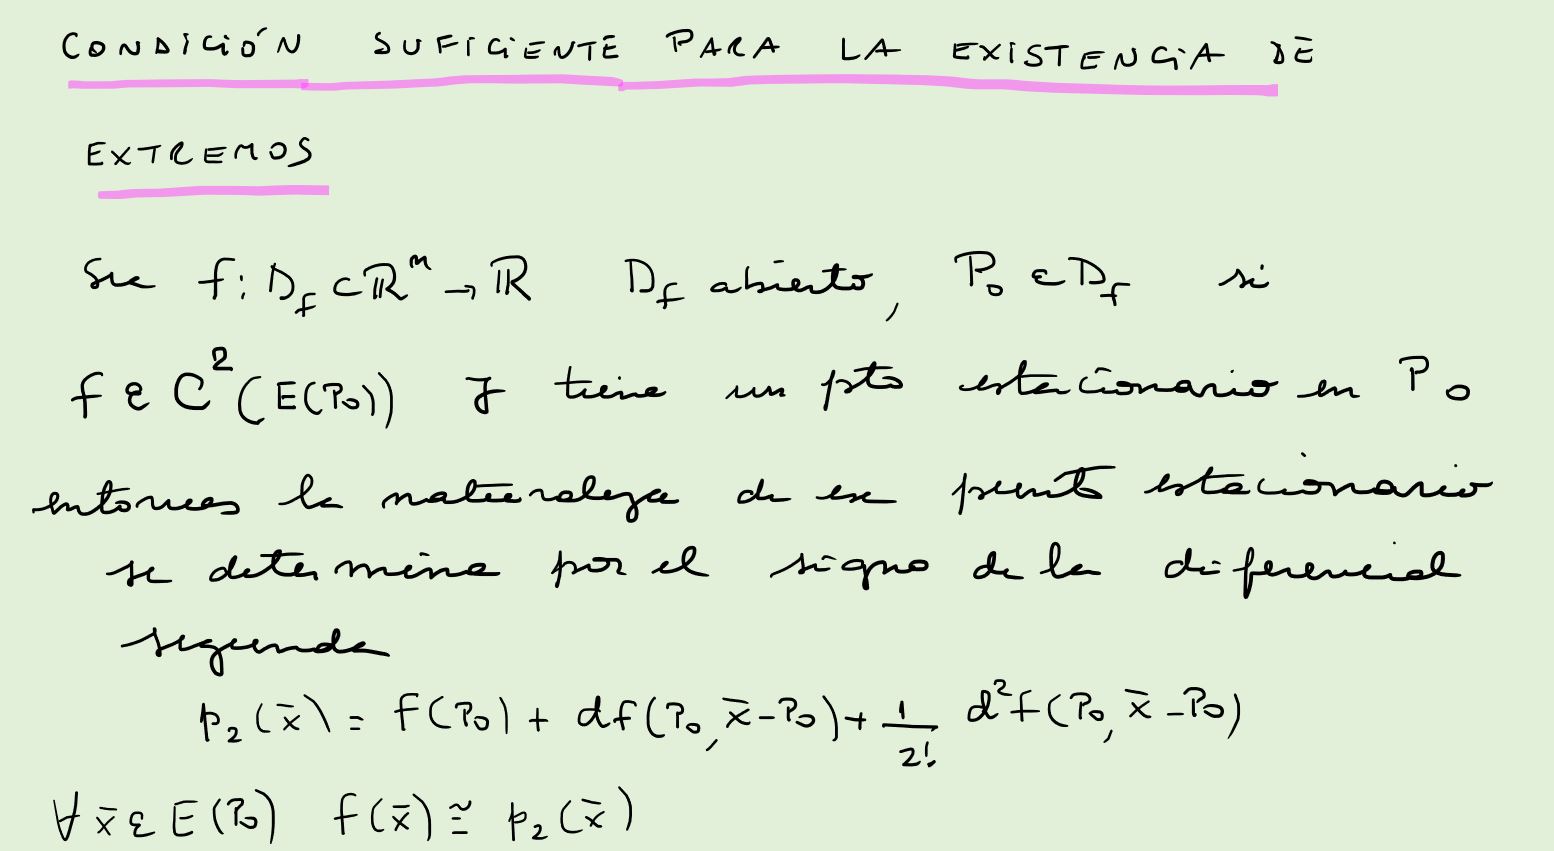 CONDICIÓN SUFICIENTE PARA LA EXISTENCIA DE
EXTREMOS
Sea f: D_f ⊂ ℝ^n → ℝ D_f abierto, P_0 ∈ D_f si
f ∈ C^2 (E(P_0)) y tiene un pto estacionario en P_0
entonces la naturaleza de ese punto estacionario
se determina por el signo de la diferencial
segunda
p_2(x̄) = f(P_0) + df(P_0, x̄-P_0) + 1/2! d^2f(P_0, x̄-P_0)
∀ x̄ ∈ E(P_0) f(x̄) ≅ p_2(x̄)